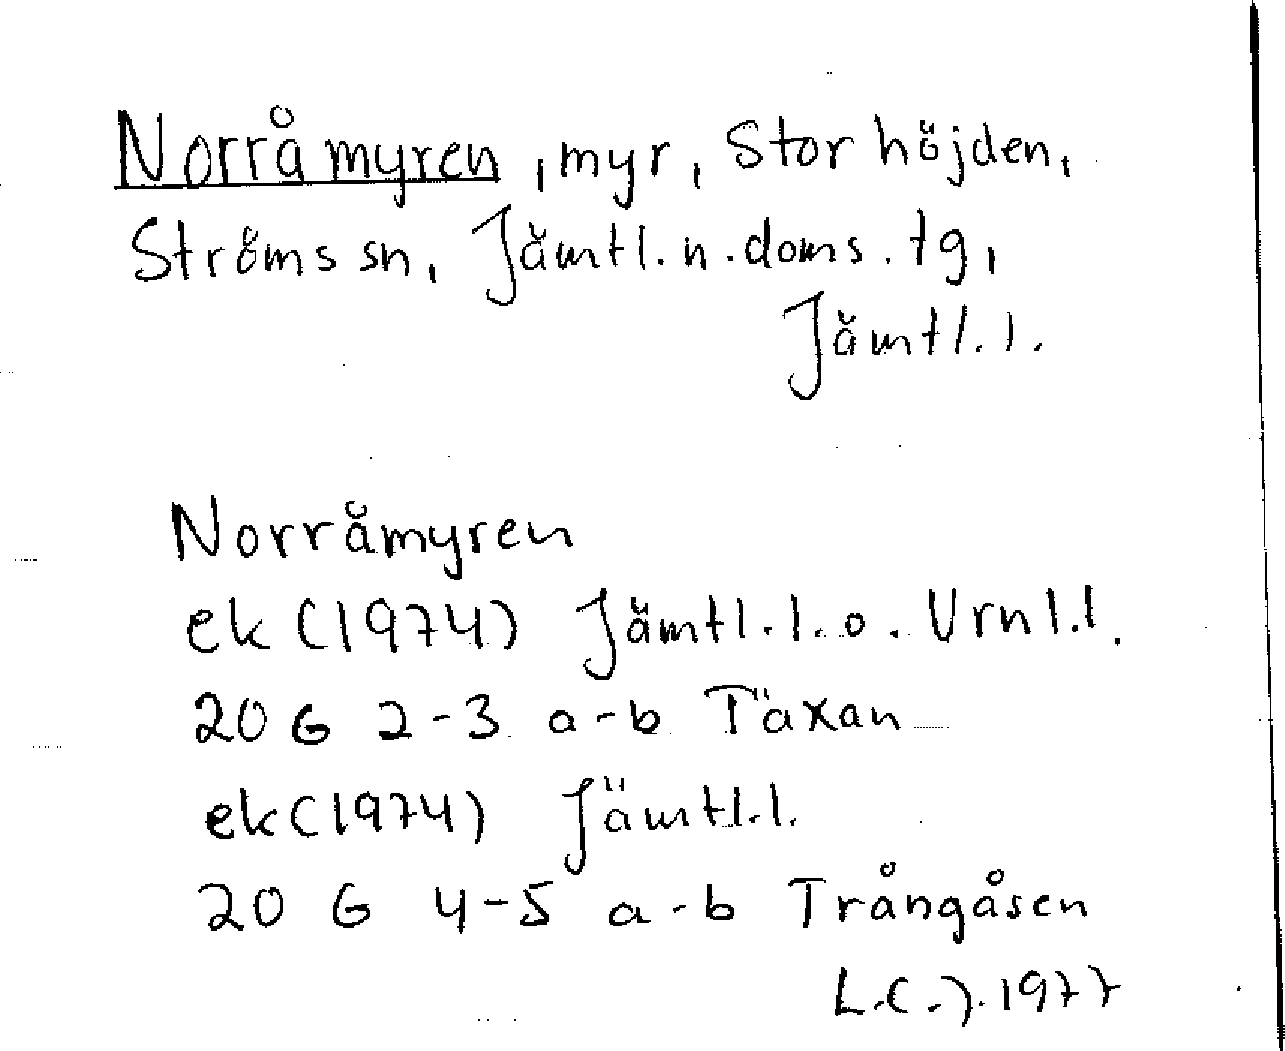 Norråmyren, myr, Storhöjden,
Ströms sn, Jämtl. n. doms. tg,
Jämtl. l.
Norråmyren
ek (1974) Jämtl. l. o. Vrnl. l.
20 G 2-3 a-b Täxan
ek (1974) Jämtl. l.
20 G 4-5 a-b Trångåsen
1977